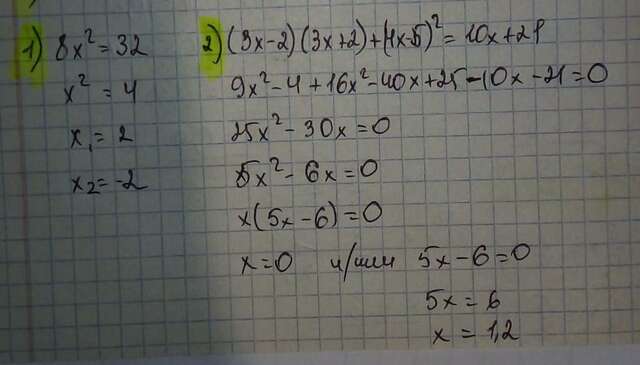 1) 8x² = 32
x² = 4
x₁ = 2
x₂ = -2
2) (3x-2)(3x+2)+(4x-5)² = 10x+21
9x²-4+16x²-40x+25-10x-21=0
25x²-30x=0
5x²-6x=0
x(5x-6)=0
x=0 и/или 5x-6=0
5x=6
x=1,2